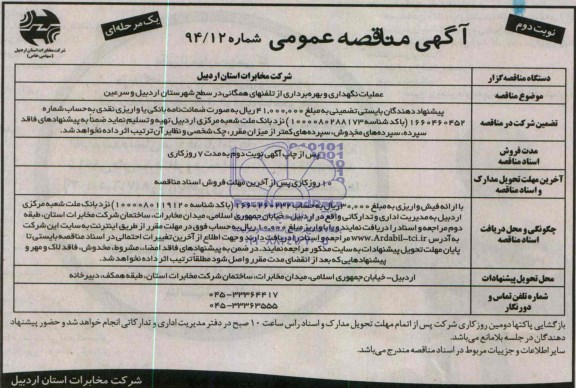 نوبت دوم
آگهی مناقصه عمومی شماره ۹۴/۱۲
یک مرحله‌ای
شرکت مخابرات استان اردبیل
(سهامی خاص)
دستگاه مناقصه گزار
شرکت مخابرات استان اردبیل
موضوع مناقصه
عملیات نگهداری و بهره‌برداری از تلفنهای همگانی در سطح شهرستان اردبیل و سرعین
تضمین شرکت در مناقصه
پیشنهاد دهندگان بایستی تضمینی به مبلغ ۴۱,۰۰۰,۰۰۰ ریال به صورت ضمانت‌نامه بانکی یا واریزی نقدی به حساب شماره
۱۶۶۰۴۶۰۴۵۲ (با کد شناسه ۱۰۰۰۰۸۰۲۸۸۱۷۳) نزد بانک ملت شعبه مرکزی اردبیل تهیه و تسلیم نماید ضمنا به پیشنهادهای فاقد
سپرده، سپرده‌های مخدوش، سپرده‌های کمتر از میزان مقرر، چک شخصی و نظایر آن ترتیب اثر داده نخواهد شد.
مدت فروش
اسناد مناقصه
پس از چاپ آگهی نوبت دوم به مدت ۷ روز کاری
آخرین مهلت تحویل مدارک
و اسناد مناقصه
۱۰ روز کاری پس از آخرین مهلت فروش اسناد مناقصه
چگونگی و محل دریافت
اسناد مناقصه
با ارائه فیش واریزی به مبلغ ۳۰,۰۰۰ ریال به حساب (با کد شناسه ۱۰۰۰۰۸۰۱۱۹۱۲۰) نزد بانک ملت شعبه مرکزی
اردبیل به مدیریت اداری و تدارکاتی واقع در اردبیل - خیابان جمهوری اسلامی، میدان مخابرات، ساختمان شرکت مخابرات استان، طبقه
دوم مراجعه و اسناد را دریافت نمایند و یا با واریز مبلغ ۱۰,۰۰۰ ریال به حساب فوق در مهلت مقرر از طریق اینترنت به سایت این شرکت
به آدرس www.Ardabil-tci.ir مراجعه و اسناد را دریافت دارند و جهت اطلاع از آخرین تغییرات احتمالی در اسناد مناقصه بایستی تا
پایان مهلت تحویل پیشنهادات به سایت مذکور مراجعه نمایند. در ضمن به پیشنهادهای فاقد امضاء، مشروط، مخدوش، فاقد لاک و مهر و
پیشنهادهایی که بعد از انقضای مدت مقرر واصل شود مطلقا ترتیب اثر داده نخواهد شد.
محل تحویل پیشنهادات
اردبیل - خیابان جمهوری اسلامی، میدان مخابرات، ساختمان شرکت مخابرات استان، طبقه همکف، دبیرخانه
شماره تلفن تماس و
دورنگار
۰۴۵-۳۳۳۶۴۴۱۷
۰۴۵-۳۳۳۶۳۵۵۵
بازگشایی پاکتها دومین روز کاری شرکت پس از اتمام مهلت تحویل مدارک و اسناد رأس ساعت ۱۰ صبح در دفتر مدیریت اداری و تدارکاتی انجام خواهد شد و حضور پیشنهاد
دهندگان در جلسه بلامانع می‌باشد.
سایر اطلاعات و جزییات مربوط در اسناد مناقصه مندرج می‌باشد.
شرکت مخابرات استان اردبیل